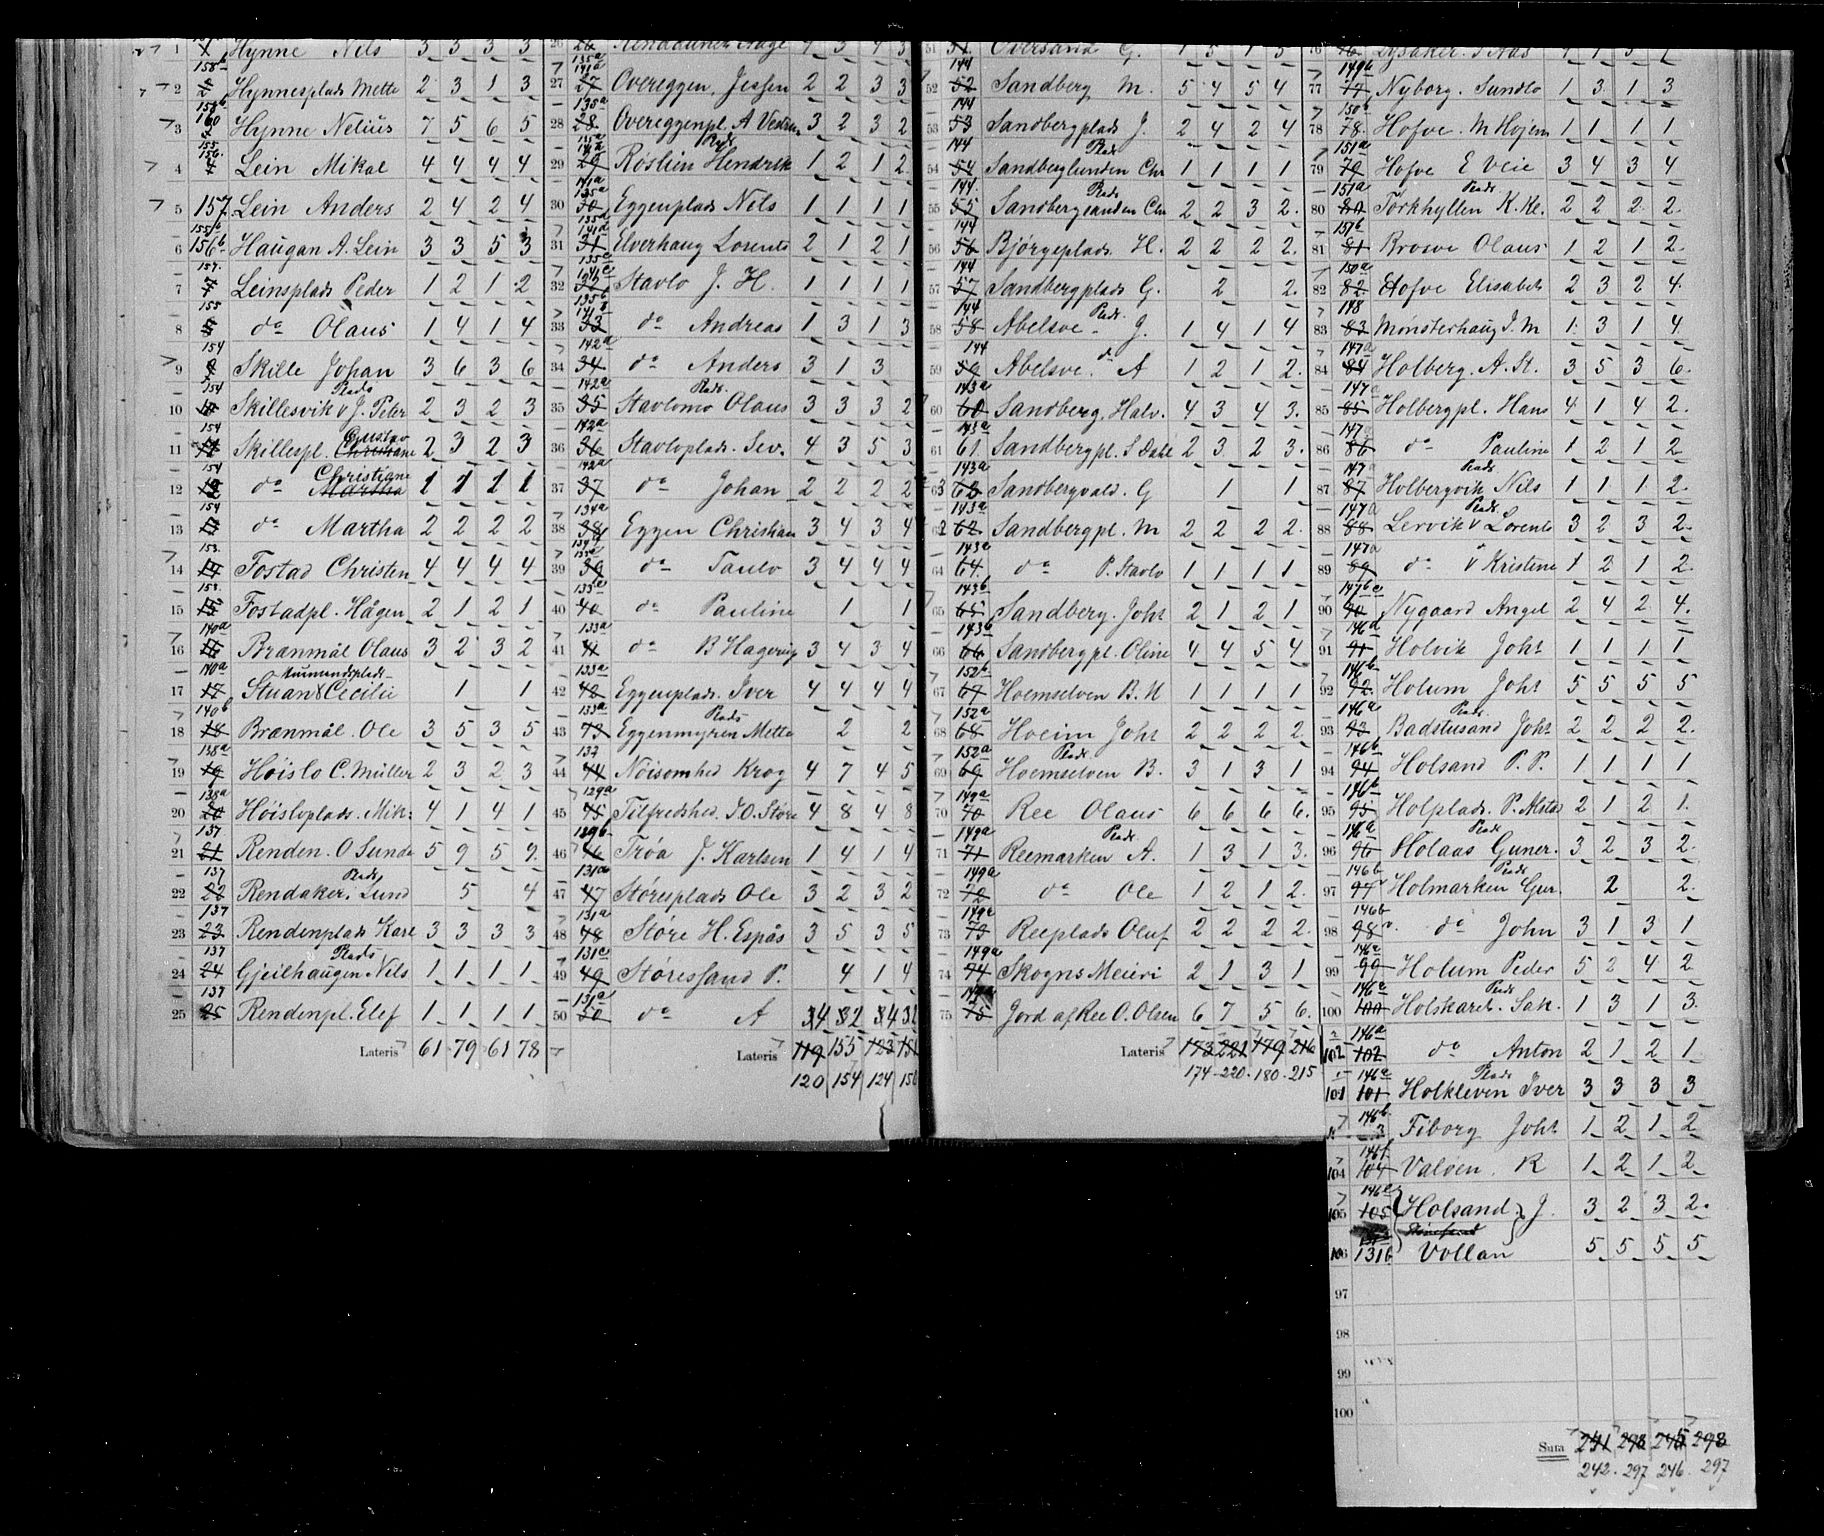 1 Hynne Nils 3 3 3 3
158b
2 Hynnesplads Mette 2 3 1 3
158b
3 160 Hynne Nelius 7 5 6 5
155
156.
4 Lein Mikal 4 4 4 4
5 157. Lein Anders 2 4 2 4
6 156b Haugan A. Lein 3 3 5 3
157.
7 Leinsplads Peder 1 2 1 2
155
8 do Olaus 1 4 1 4
154
9 Skille Johan 3 6 3 6
154 Plads
10 Skillesvik v J. Peter 2 3 2 3
154 Gustav
11 Skillespl. Christiane 2 3 2 3
154 Christiane
12 do Martha 1 1 1 1
154
13 do Martha 2 2 2 2
153.
14 Fostad Christen 4 4 4 4
153.
15 Fostadpl. Hågen 2 1 2 1
140a
16 Brænmål Olaus 3 2 3 2
140a
17 Stuan Cecilie 1 1
140b
18 Brænmål. Ole 3 5 3 5
138a
19 Høislo C. Müller 2 3 2 3
138a
20 Høisloplads. Mik: 4 1 4 1
137
21 Renden. O Sunde 5 9 5 9.
137 Plads
22 Rendaker. Lund 5 4
137
23 Rendenplads Karl 3 3 3 3
137 Plads
24 Gjeilhaugen Nils 1 1 1 1
137
25 Rendenpl. Elef 1 1 1 1
Lateris 61 79 61 78
26
135a
141a
27 Overeggen, Jessen 2 2 3 3
135a
28 Overeggenpl. A 3 2 3 2
29 Røstien Hendrik 1 2 1 2.
141a
135a
30 Eggenplads Nils 1 1 1 1
135a
141a
31 Elverhaug Lorents 2 1 2 1
135a
141a
32 Stavlo J. H. 1 1 1 1
135b
33 do Andreas 1 3 1 3
142a
34 do Anders 3 1 3
142a Plads.
35 Stavlomo Olaus 3 3 3 2
142a
36 Stavloplads. Sev. 4 3 5 3
142a
37 do Johan 2 2 2 2
134a
38 Eggen Christian 3 4 3 4
39 do Paulo 3 4 4 4
133a
40 do Pauline 1 1
133a
41 do B Hagerup 3 4 3 4
133a
42 Eggenplads. Iver 4 4 4 4
133a Plads
43 Eggenmyren Mette 2 2
137
44 Nøisomhed Krog 4 7 4 5
129a
45 Tilfredshed. J.O. Støre 4 8 4 8
129b.
46 Trøa J. Karlsen 1 4 1 4
47 Støresplads Ole 3 2 3 2
131a
48 Støre H. Espås 3 5 3 5
131a
49 Støressand P. 4 1 4
131a
50 do A
Lateris 119 155 123 151
120 154 124 150
51 Oversand G. 1 5 1 5
144
52 Sandberg M. 5 4 5 4
144
53 Sandbergplads J. 2 4 2 4
144 Plads
54 Sandberglunden Chr 1 1 1 1
144. Plads
55 Sandbergsanden Chr 2 2 3 2.
144
56 Bjørgeplads. H. 2 2 2 2.
144
57 Sandbergplads G. 2 2.
144 Plads.
58 Abelsve J. 1 4 1 4
144
59 Abelsve. A 1 2 1 2.
143a
60 Sandberg. Halv. 4 3 4 3.
143a
61. Sandbergpl. S Dahl 2 3 2 3.
143a
63 Sandbergvald. G 1 1
143a
62 Sandbergpl. M 2 2 2 2.
143a
64 do P. Stavlo 1 1 1 1
143b
65 Sandberg. Joht 2 1 2 1
143b
66 Sandbergpl. Oline 4 4 5 4
152b
67 Hoemselven B. N 1 1 1 1
152a
68 Hoeim Joht 2 2 2 2
152a Plads.
69 Hoemselven B. 3 1 3 1
149a
70 Ree Olaus 6 6 6 6.
149a Plads
71 Reemarken A. 1 3 1 3.
149a
72 do Ole 1 2 1 2.
149a
73 Reeplads Oluf 2 2 2 2.
149a
74 Skogns Meieri 2 1 3 1
75 Jord af Ree O. Olsen 6 7 5 6.
Lateris 173 221 179 216
174 220. 180. 215
76
149b
77 Nyborg. Sundlo 1 3 1 3
150a
78. Hofve. M Højem 1 1 1 1
151a
79 Hofve E Veie 3 4 3 4
151a Plads
80 Torkhyllen K. Kl. 2 2 2 2.
151b
81 Brosve Olaus 1 2 1 2.
150a
82 Hofve Elisabet 2 3 2 4.
148
83 Mønsterhaug I. M 1. 3 1 4.
147a
84 Holberg. A. St. 3 5 3 6.
147a
85 Holbergpl. Hans 4 1 4 2.
147a
86 do Pauline 1 2 1 2
147a Plads.
87 Holbergvik Nils 1 1 1 2.
147a Plads.
88 Lervik v Lorents 3 2 3 2.
147a
89 do v Kristine 1 2 1 2.
147b
90 Nygaard Angel 2 4 2 4.
146a
91 Holvik Joht 1 1 1 1
146b
92. Holum Joht 5 5 5 5
146a Plads.
93 Badstusand Joht 2 2 2 2.
146b
94 Holsand P. P. 1 1 1 1
146b
95 Holplads. P. Alstad 2 1 2 1.
146a Plads
96 Holaas Guner. 3 2 3 2.
146b Plads
97 Holmarken Gur. 2 2.
146b
98 do John 3 1 3 1
146a
99 Holum Peder 5 2 4 2
146a Plads
100 Holskaret. Sak. 1 3 1 3.
146a
102 do Anton 2 1 2 1
146a Plads
101 Holkleven Iver 3 3 3 3
146b
3 Fiborg Joht 1 2 1 2
146b
104 Valøen. R 1 2 1 2
146a
105 Holsand J. 3 2 3 2.
106 131b Vollan 5 5 5 5
97
98
99
100
Suta 241 298 245 298
242. 297 246. 297